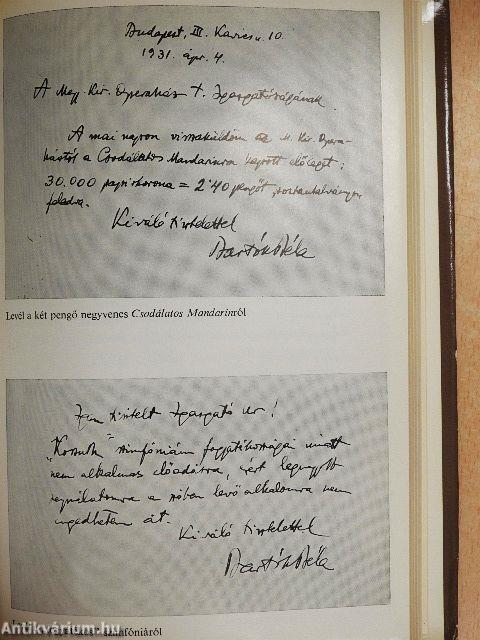 Budapest, III. Kavics u. 10.
1931. ápr. 4.
A Mag. Kir. Operaház T. Igazgatóságának.
A mai napon visszaküldöm az M. Kir. Opera-
háztól a Csodálatos Mandarinra kapott előleget:
30.000 papirkorona = 2·40 pengőt, postautalványon
feladva.
Kiváló tisztelettel
Bartók Béla
Levél a két pengő negyvenes Csodálatos Mandarinról
Igen tisztelt Igazgató úr!
"Kossuth" szinfóniám fogyatékosságai miatt
nem alkalmas előadásra, ezért
a szóban levő alkalomra nem
engedhetem át.
Kiváló tisztelettel
Bartók Béla
szimfóniáról
Antikvárium.hu